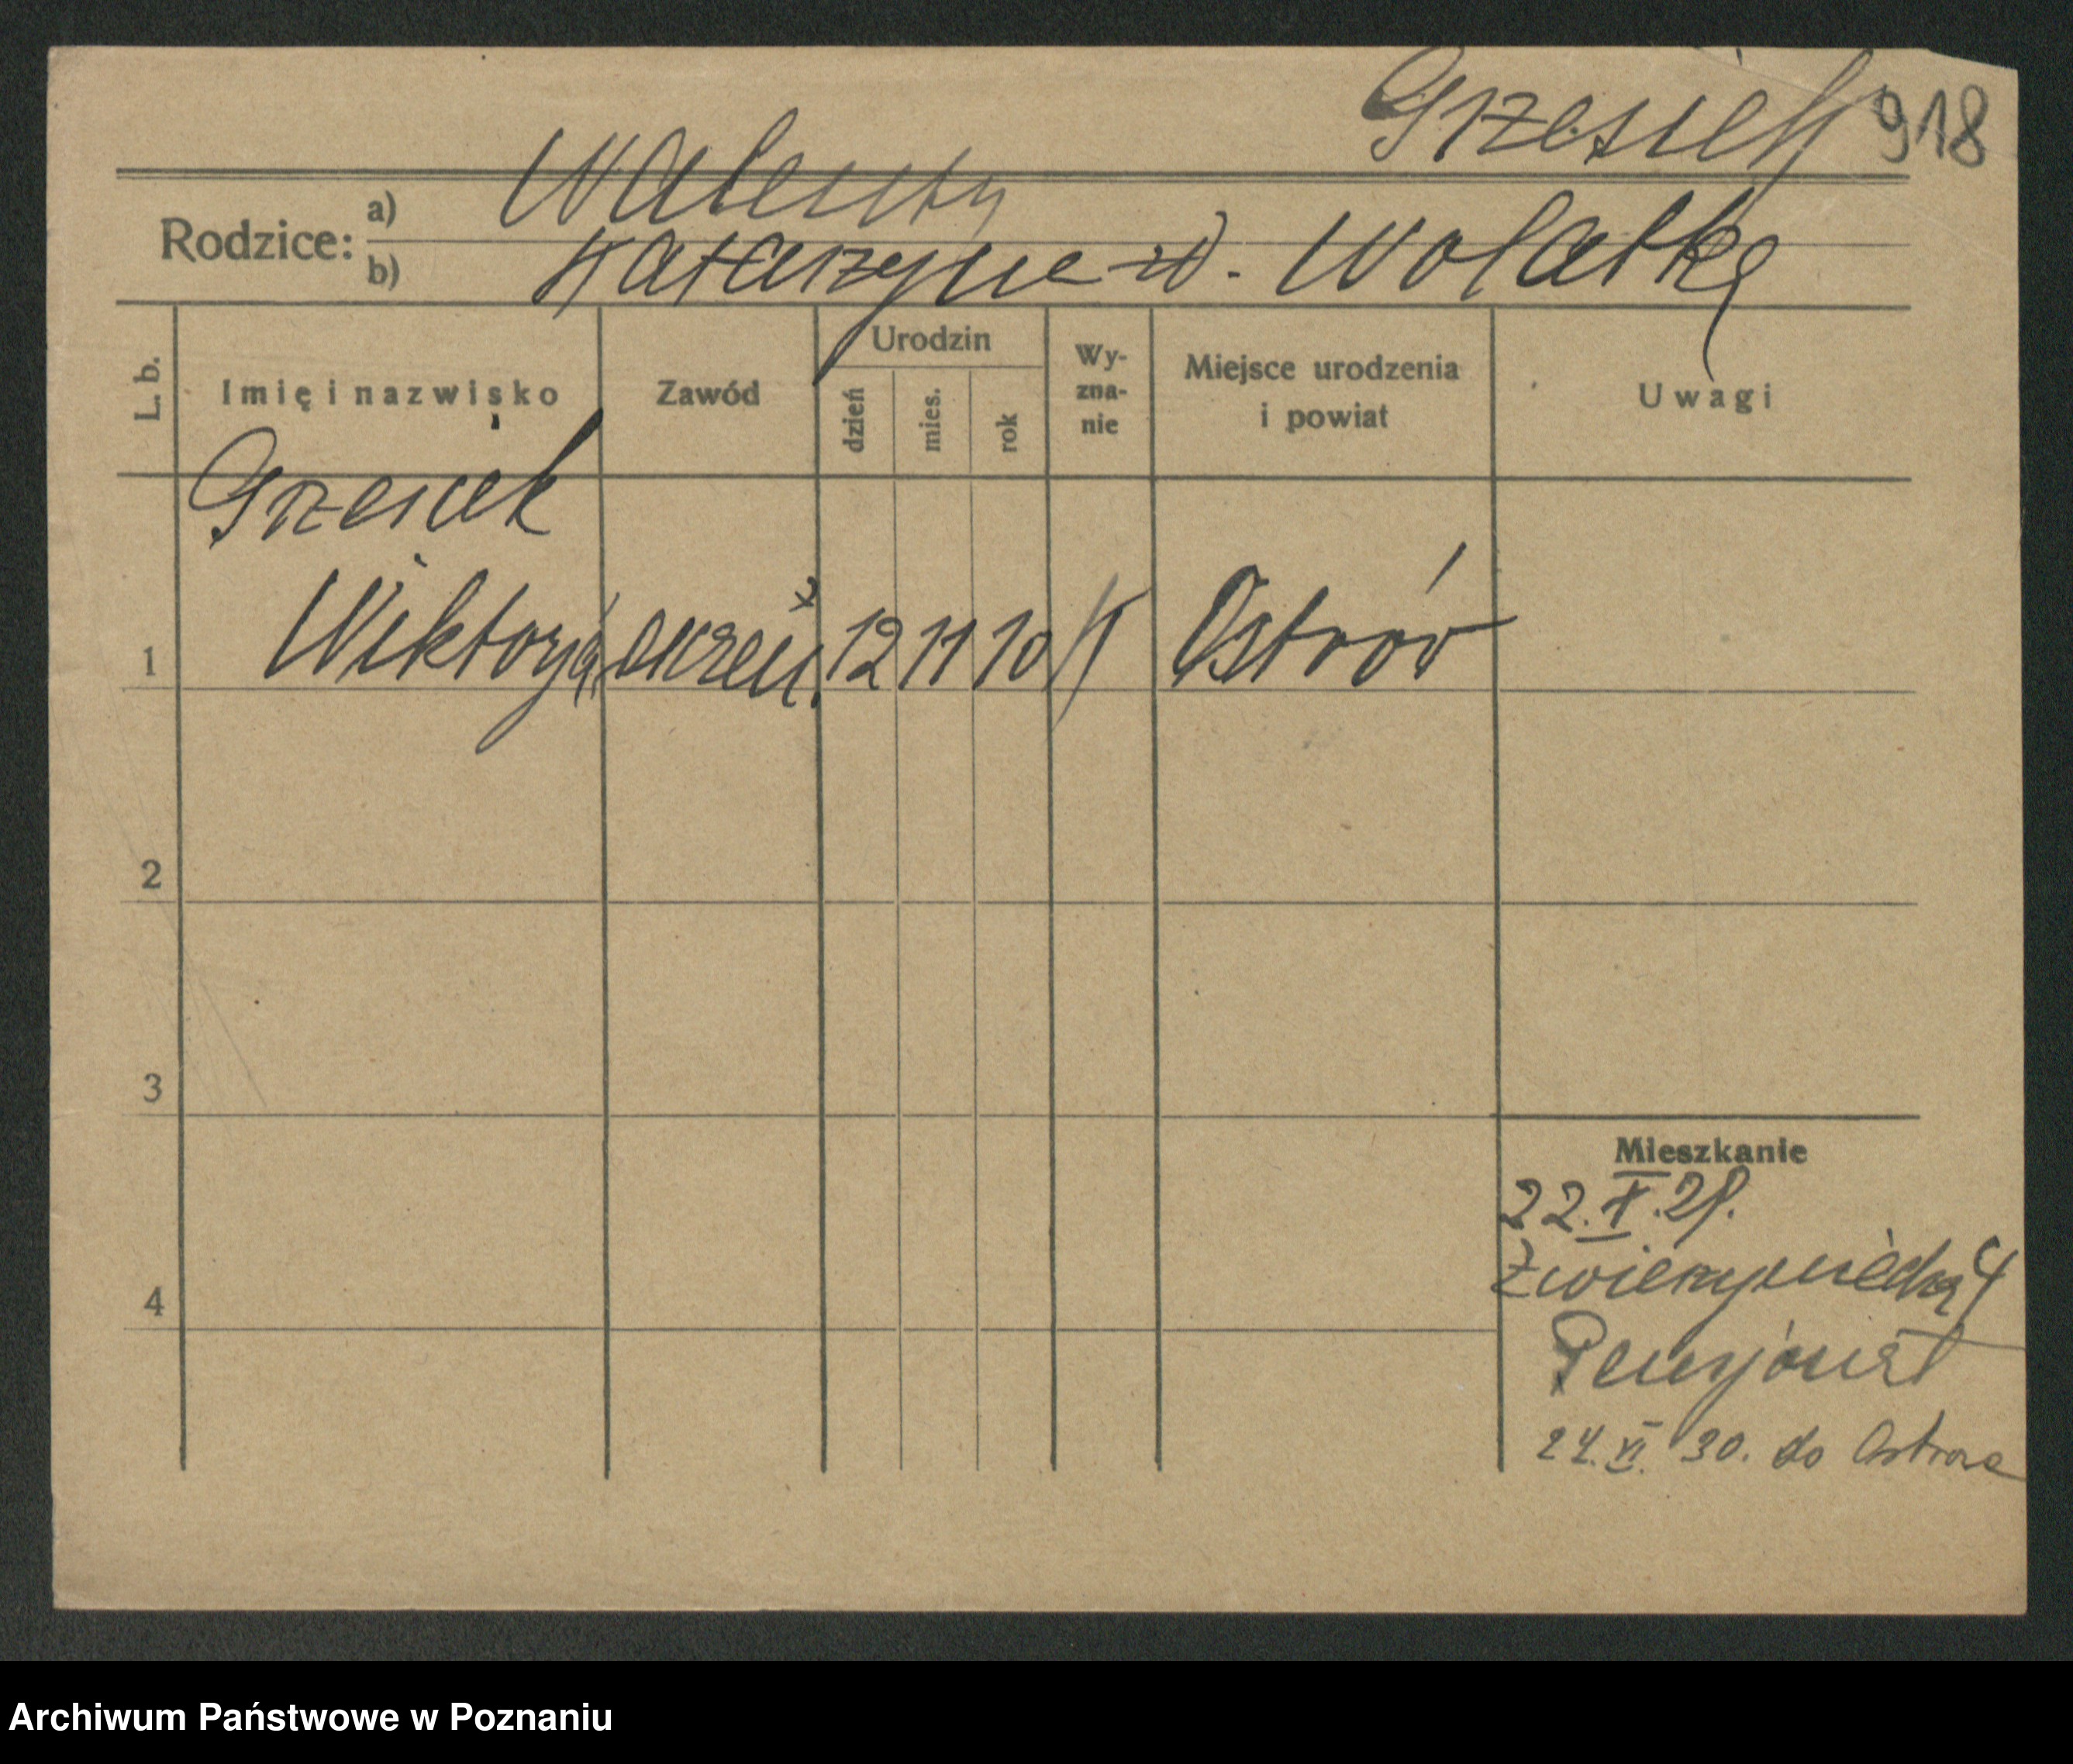 Grzesiek 918
Walenty
Rodzice: a)
b) Katarzyna z d. Wolatka
L. b.
Imię i nazwisko
Zawód
Urodzin
dzień
mies.
rok
Wy-
zna-
nie
Miejsce urodzenia
i powiat
Uwagi
Grzesiek
1 Wiktorja 12 11 10 Ostrów
2
3
4
Mieszkanie
22. X. 29.
Zwierzyniecka 4
Pensjonat
24. VI. 30. do Ostrowa
Archiwum Państwowe w Poznaniu